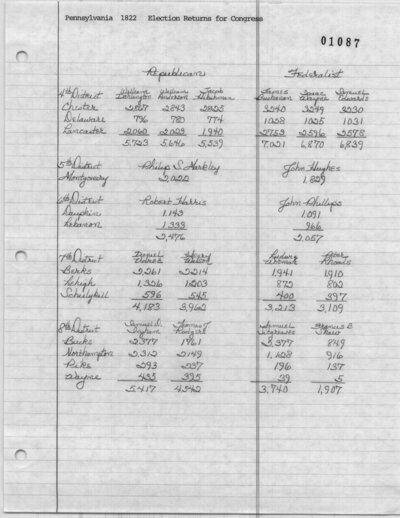 Pennsylvania 1822 Election Returns for Congress
01087
Republican Federalist
4th District William Darlington William Anderson Jacob Hibshman James Buchanan Isaac Wayne Samuel Edwards
Chester 2867 2843 2825 3240 3249 3230
Delaware 796 780 774 1028 1025 1031
Lancaster 2,060 2,023 1,940 2753 2,596 2,578
5,723 5,646 5,539 7,021 6,870 6,839
5th District Philip S. Markley John Hughes
Montgomery 2,022 1,829
6th District Robert Harris John Phillips
Dauphin 1,143 1,091
Lebanon 1,333 966
2,476 2,057
7th District Daniel Henry
Berks 2,261 2214 1,941 1,910
Lehigh 1,326 1,203 872 802
Schuylkill 596 545 400 397
4,183 3,962 3,213 3,109
8th District Samuel D. Ingham Thomas J. Rogers Samuel
Bucks 2,377 1961 2,377 849
Northampton 2,312 2149 1,128 916
Pike 293 237 196 137
Wayne 435 395 39 5
5,417 4,742 3,740 1,907